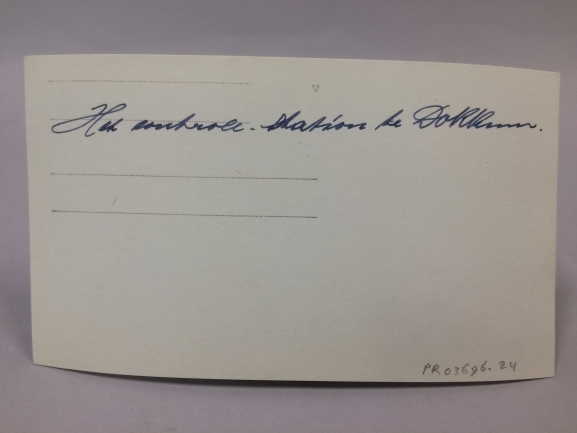 Het controle-station te Dokkum.
PR03696.24